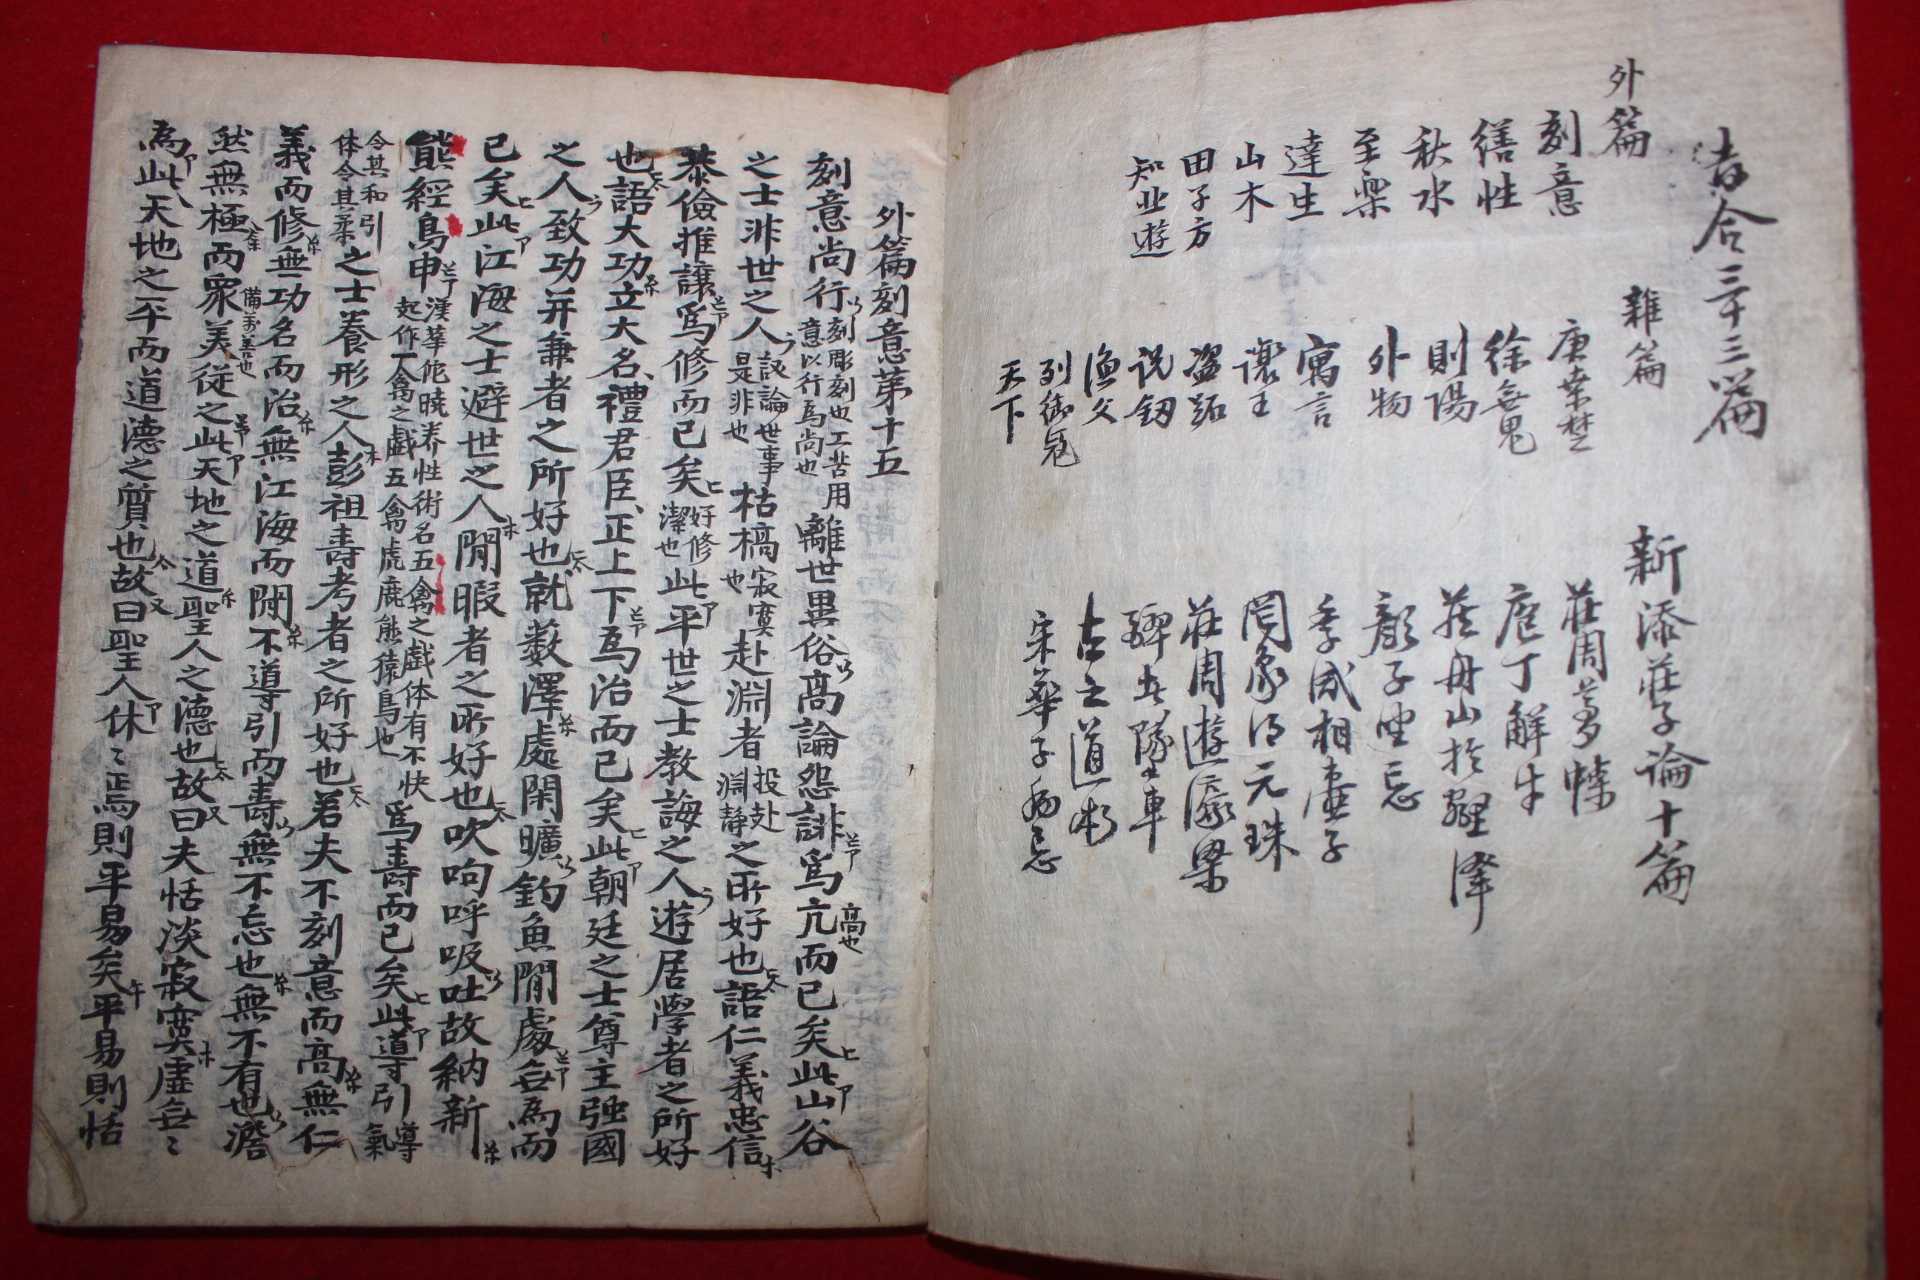 合三十三篇
外篇
刻意
繕性
秋水
至樂
達生
山木
田子方
知北遊
雜篇
庚桑楚
徐無鬼
則陽
外物
寓言
讓王
盗跖
説釼
漁父
列御冠
天下
新添莊子論十篇
莊周夢蝶
庖丁解牛
藏舟山於壑澤
顔子坐忘
季咸相壺子
罔象得元珠
莊周遊濠梁
古之道術
宋華子病忘
外篇刻意第十五
刻意尚行刻彫刻也工苦用意以行為尚也離世異俗高論怨誹爲亢高也而已矣此山谷
之士非世之人議論世事是非也枯槁寂寞也赴淵者投赴淵静之所好也語仁義忠信
恭儉推讓爲修而已矣好修潔也此平世之士教誨之人遊居學者之所好
也語大功立大名禮君臣正上下為治而已矣此朝廷之士尊主强國
之人致功并兼者之所好也就藪澤處閑曠釣魚閒處無為而
已矣此江海之士避世之人閒暇者之所好也吹呴呼吸吐故納新
熊經鳥申漢華佗曉养性術名五禽之戲体有不快起作一禽之戲五禽虎鹿熊猿鳥也爲壽而已矣此導引導氣
令其和引体令其柔之士養形之人彭祖壽考者之所好也若夫不刻意而高無仁
義而修無功名而治無江海而閒不導引而壽無不忘也無不有也澹
然無極而衆美從之備萬善也此天地之道聖人之德也故曰夫恬淡寂寞虛無〻
為此天地之平而道德之質也故曰聖人休〻焉則平易矣平易則恬